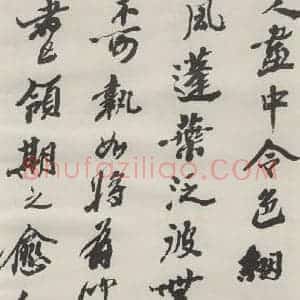 人畫中合色細
風蓬葉泛波世
不可執如將
老領期之愈
shufaziliao.com